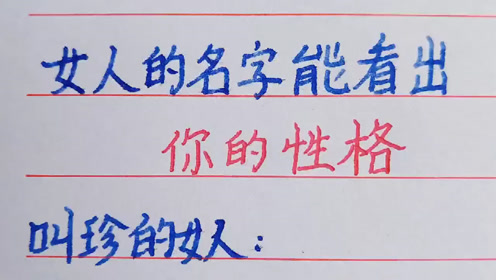 女人的名字能看出
你的性格
叫珍的女人：